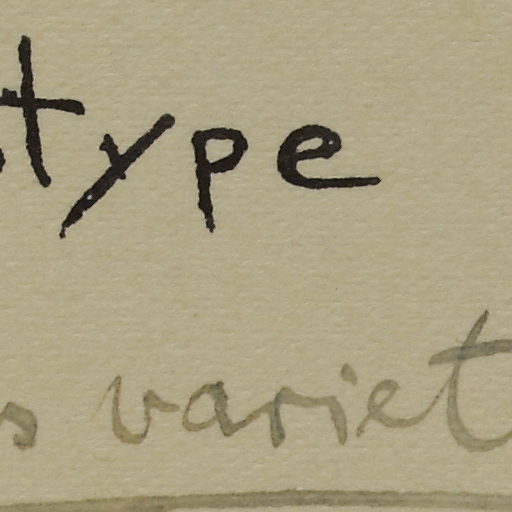 type
s variet